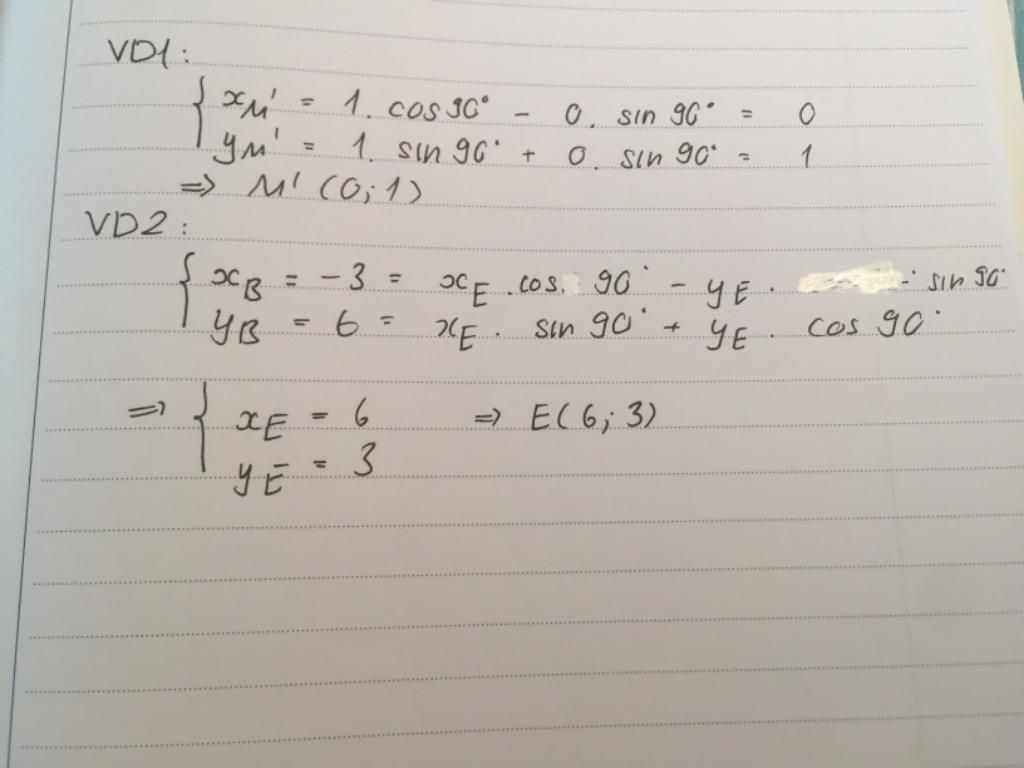 VD1:
{ xM' = 1. cos 90° - 0. sin 90° = 0
yM' = 1. sin 90° + 0. sin 90° = 1
=> M' (0;1)
VD2:
{ xB = -3 = xE . cos. 90° - yE . sin 90°
yB = 6 = xE . sin 90° + yE . cos 90°
=> { xE = 6 => E(6;3)
yE = 3